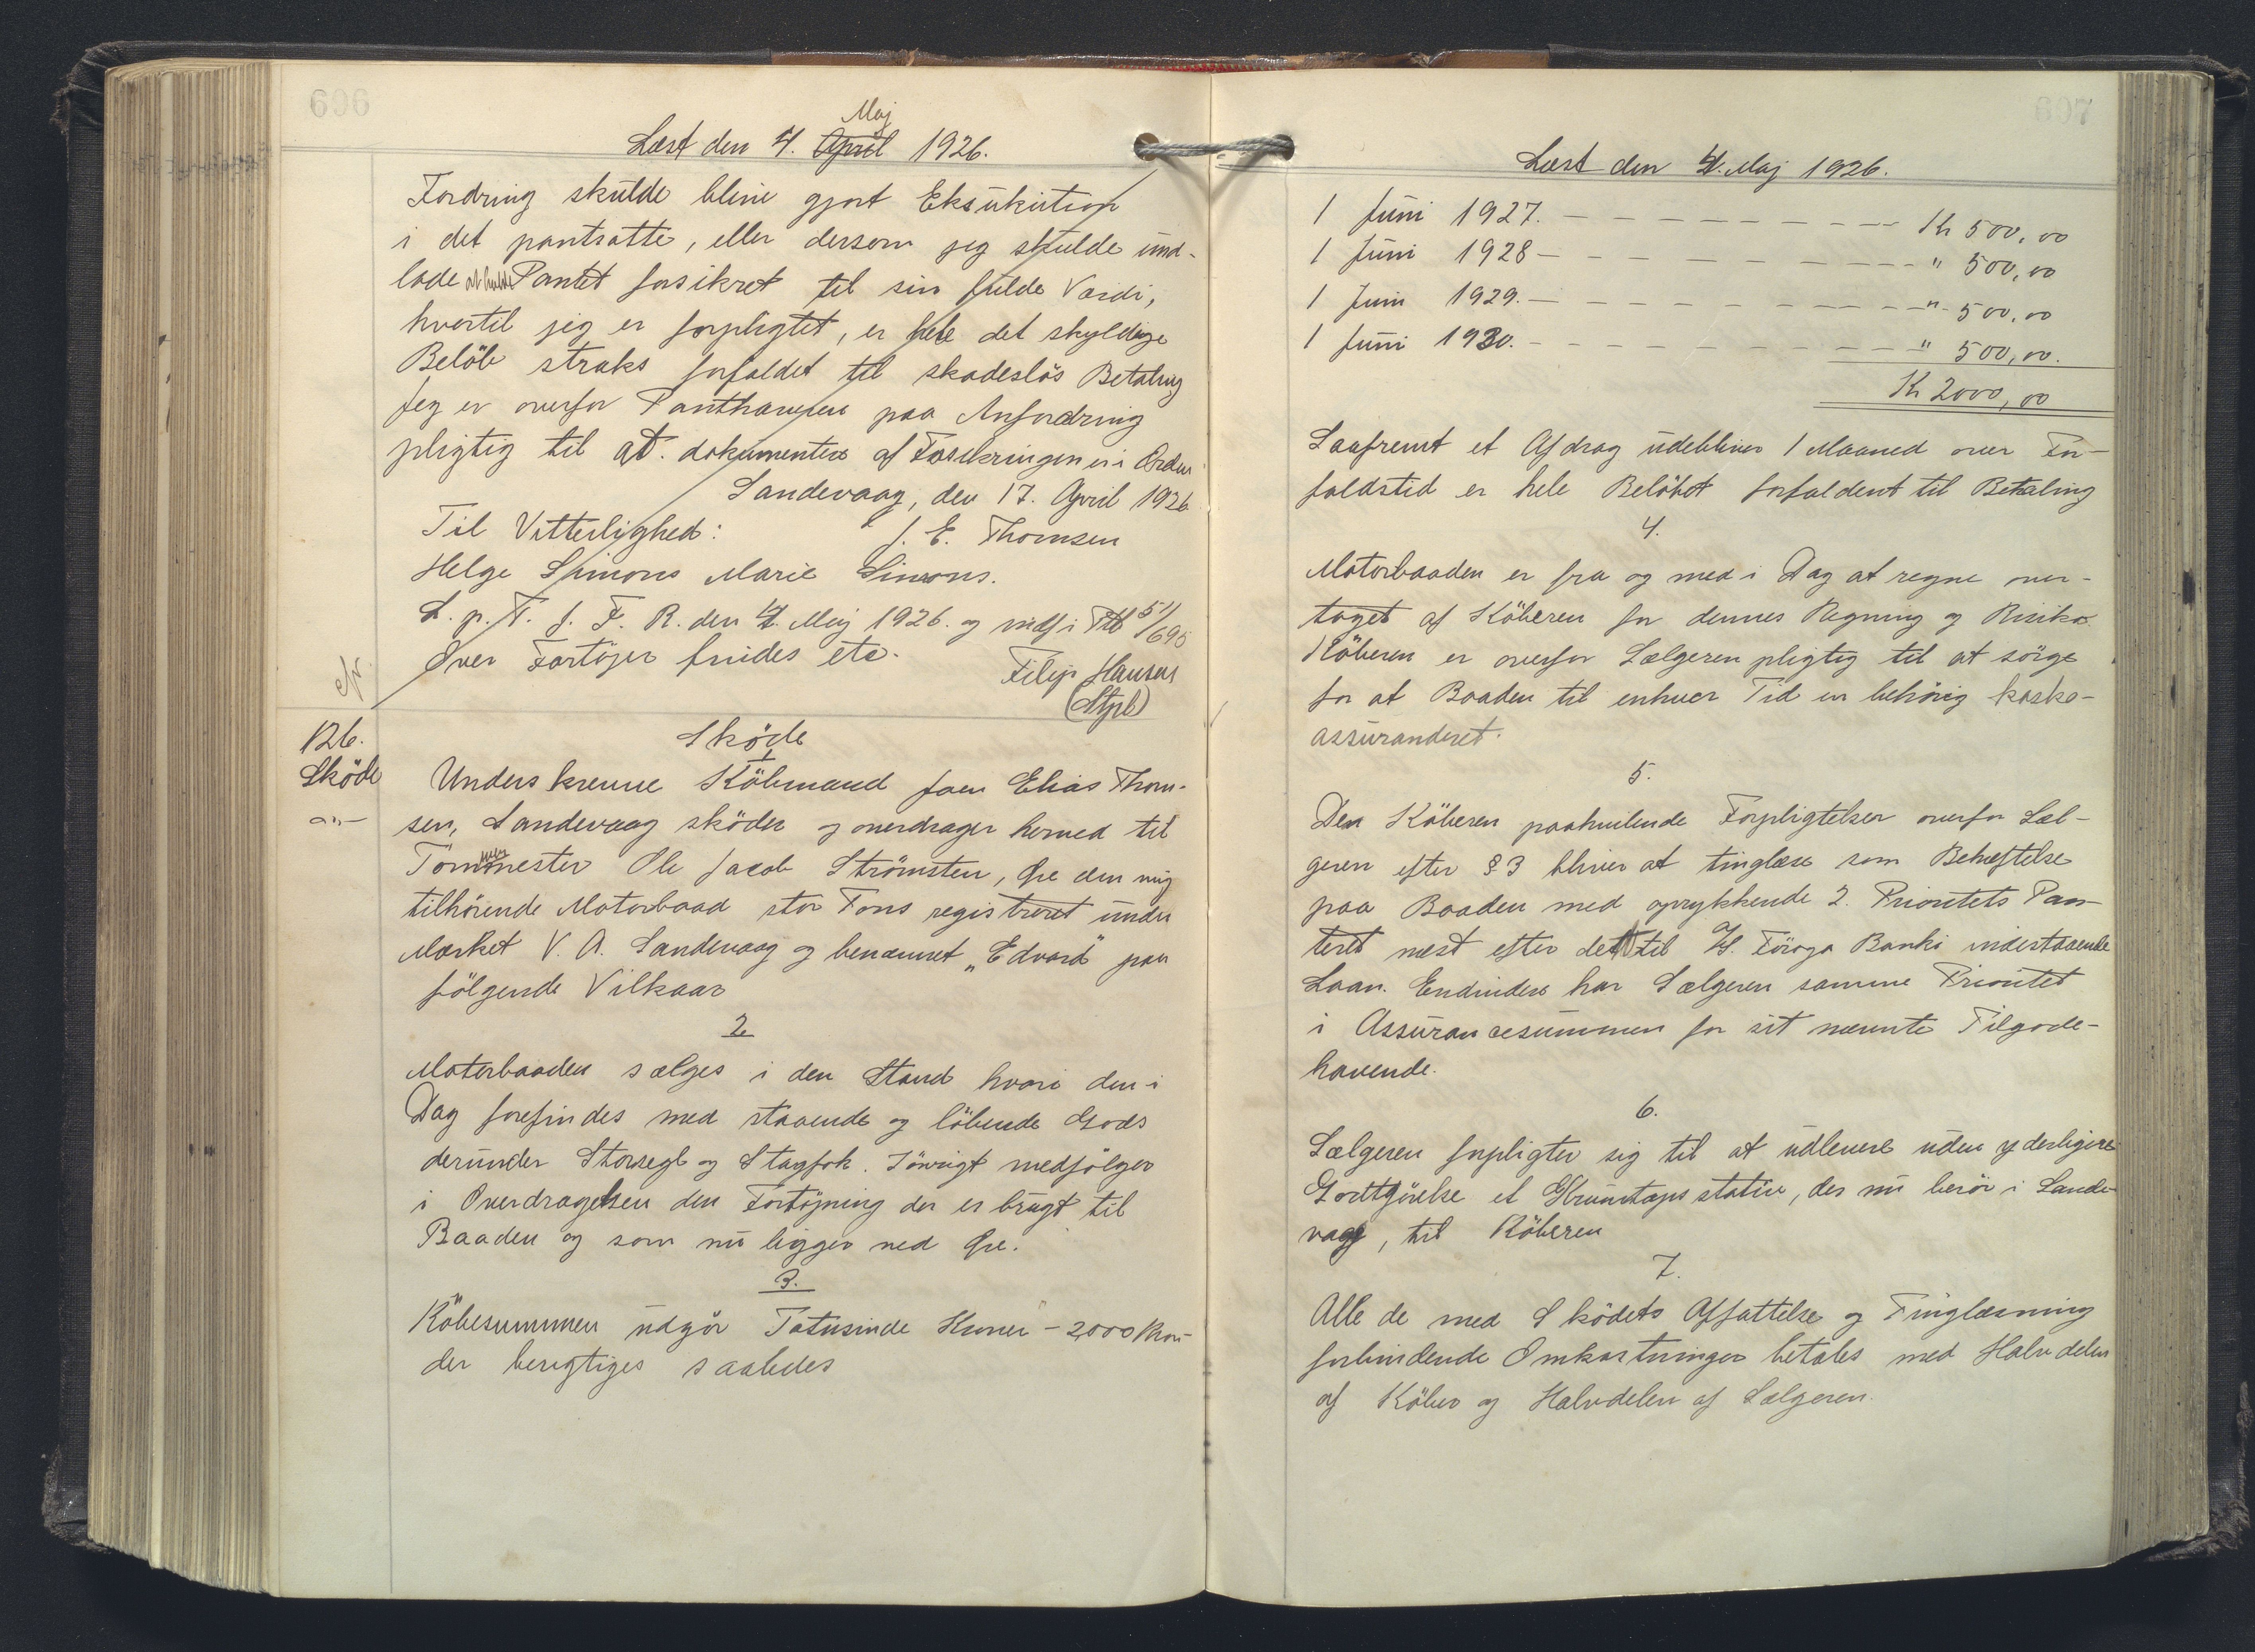 696
Læst den 4. April Maj 1926.
Fordring skulde blive gjort Eksukution
i det pantsatte, eller dersom jeg skulde und-
lade at holde Pantet forsikret til sin fulde Værdi,
hvortil jeg er forpligtet, er hele det skyldige
Belöb straks forfaldet til skadeslös Betaling
Jeg er overfor Panthaveren paa Anfordring
pligtig til at dokumentere at Forsikringen er i Orden
Sandevaag, den 17. April 1926
Til Vitterlighed: J. E. Thomsen
Helge Simons Marie Simons.
L. p. T. f. F. R. den 4. Maj 1926. og indf i Ptb 51/695
Over Fartöjer findes etc.
Filip Hansen
(Stpl)
126.
Sköde
Sköde
1
Underskrevne Köbmand Joen Elias Thom-
sen, Sandevaag sköder og overdrager herved til
Tömmermester Ole Jacob Strömsten, Öre den mig
tilhörende Motorbaad stor Tons registreret under
Mærket V. A. Sandevaag og benævnet „Edvard" paa
fölgende Vilkaar
2
Motorbaaden sælges i den Stand hvori den i
Dag forefindes med staaende og löbende Gods
derunder Storsegl og Stagfok. Iövrigt medfölger
i Overdragelsen den Fortöjning der er brugt til
Baaden og som nu ligger ved Öre.
3.
Köbesummen udgör Totusinde Kroner - 2000 Kron-
der berigtiges saaledes
697
Læst den 4. Maj 1926.
1 Juni 1927. - - - - - - - - - Kr 500,00
1 Juni 1928 - - - - - - - - - " 500,00
1 Juni 1929. - - - - - - - - - " 500,00
1 Juni 1930. - - - - - - - - - " 500,00.
Kr 2000,00
Saafremt et Afdrag udebliver 1 Maaned over For-
faldstid er hele Belöbet forfaldent til Betaling
4.
Motorbaaden er fra og med i Dag at regne over-
taget af Köberen for dennes Regning og Risiko.
Köberen er overfor Sælgeren pligtig til at sörge
for at Baaden til enhver Tid er behörig kasko-
assuranderet.
5.
Den Köberen paahvilende Forpligtelser overfor Sæl-
geren efter § 3 bliver at tinglæse som Behæftelse
paa Baaden med oprykkende 2. Prioritets Pan-
teret næst efter det til A/S. Föroya Banki indestaaende
Laan. Endvidere har Sælgeren samme Prioritet
i Assurancesummen for sit nævnte Tilgode-
havende.
6.
Sælgeren forpligter sig til at udlevere uden yderligere
Godtgörelse et Grumtogsstativ, der nu beror i Sande-
vaag, til Köberen
7.
Alle de med Sködets Affattelse og Tinglæsning
forbindende Omkostninger betales med Halvdelen
af Köber og Halvdelen af Sælgeren.